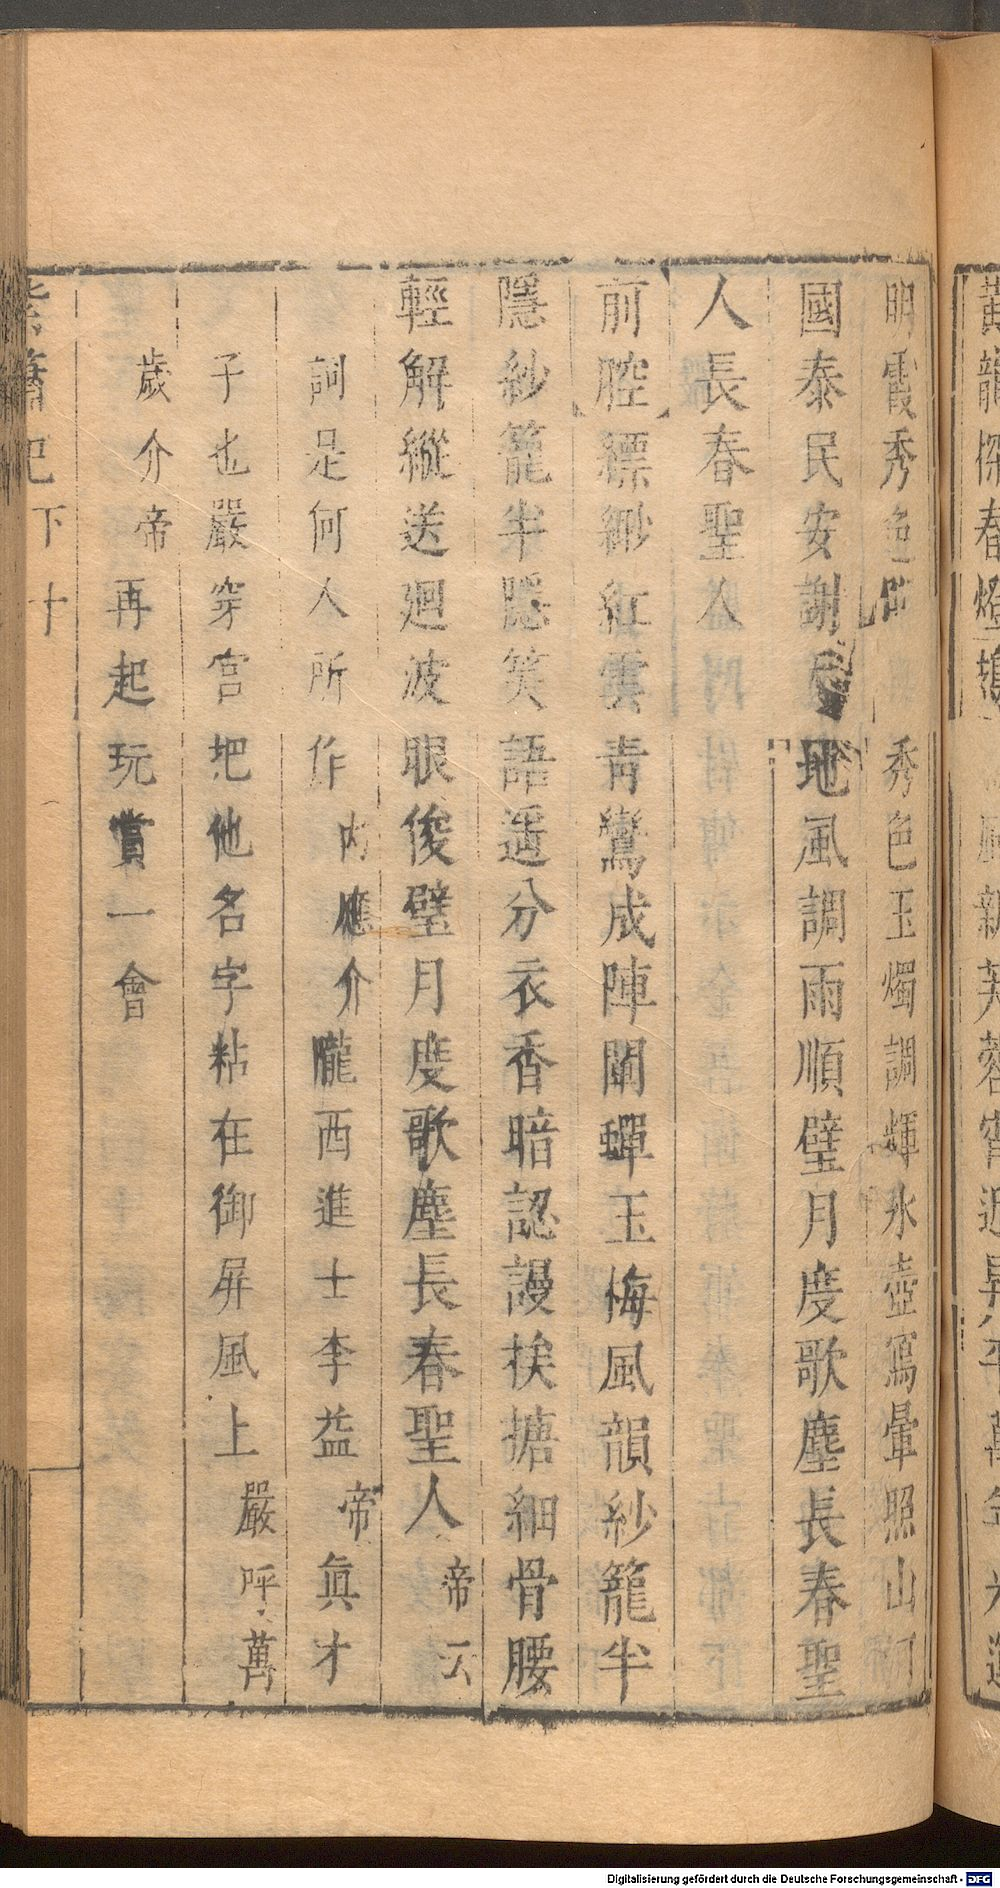 明霞秀色 秀色玉燭調輝氷壺寫暈照山河
國泰民安謝 地風調雨順璧月度歌塵長春聖
人長春聖人
前腔縹緲紅雲青鸞成陣闌蟬玉梅風韻紗籠半
隱紗籠半隱笑語遥分衣香暗認謾挨搪細骨腰
輕解縱送廻波眼俊璧月度歌塵長春聖人帝云
詞是何人所作内應介隴西進士李益帝眞才
子也嚴穿宫把他名字粘在御屏風上嚴呼萬
歲介帝再起玩賞一會
紫簫記下十
Digitalisierung gefördert durch die Deutsche Forschungsgemeinschaft - DFG